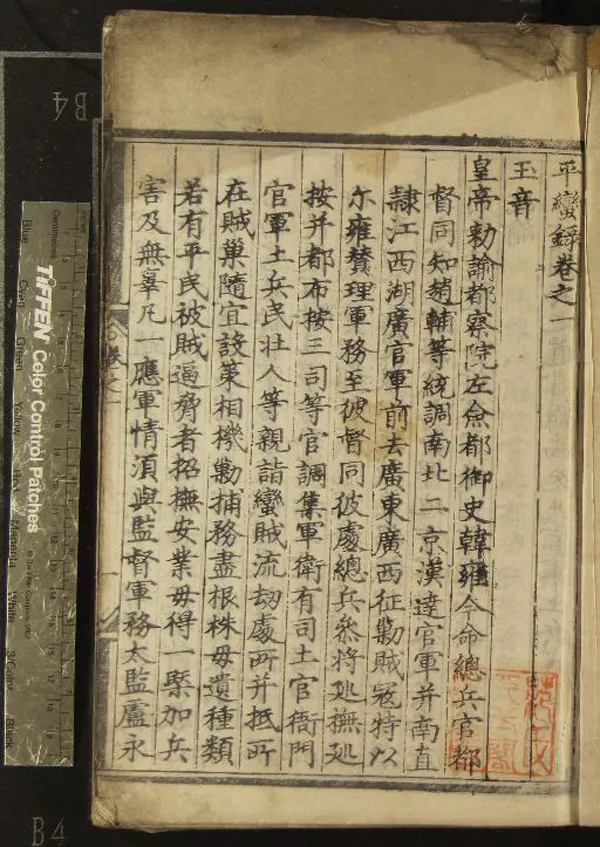 平蠻錄卷之一
玉音
皇帝勅諭都察院左僉都御史韓雍今命總兵官都
督同知趙輔等統調南北二京漢達官軍并南直
隸江西湖廣官軍前去廣東廣西征勦賊寇特以
尓雍賛理軍務至彼督同彼處總兵叅将廵撫廵
按并都布按三司等官調集軍衛有司土官衙門
官軍土兵民壮人等親詣蠻賊流刼處所并抵所
在賊巢隨宜設策相機勦捕務盡根株毋遺種類
若有平民被賊逼脅者招撫安業毋得一槩加兵
害及無辜凡一應軍情湏與監督軍務太監盧永
卷之一
TIFFEN Color Control Patches
Centimetres
Blue
Cyan
Green
Yellow
Red
Magenta
White
3/Color
Black
B4
B4